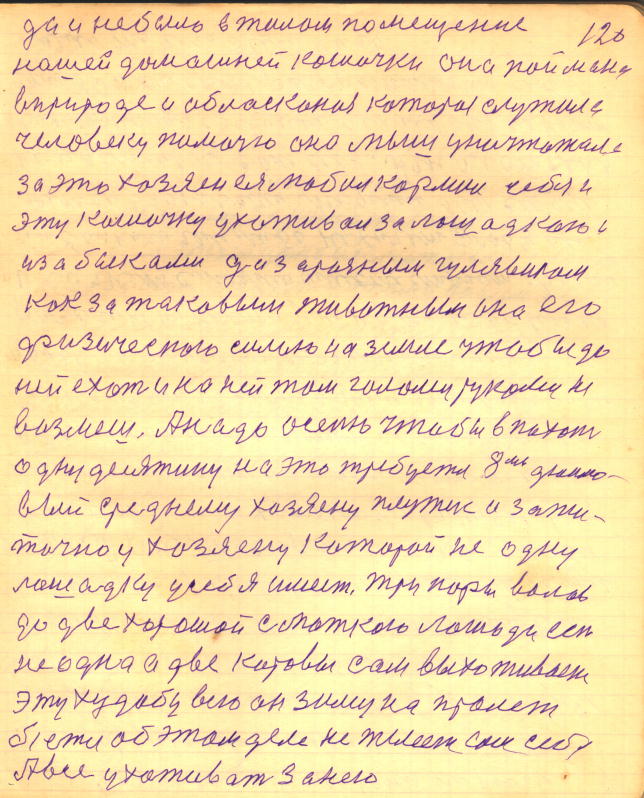 да и небыло в жилом помещение 120
нашей домашней кошички она поймана
в природе и обласконая котороя служила
человеку помочю она мыши уничтожала
за это хозяен ея любил кормил себя и
эту кошичку ухоживал за лошадкою и
и за быками да и за
как за таковым животным она его
физическою силою на земле чтобы до
ней ехат и на ней там голоми руками не
возмеш. А надо осеню чтобы впахат
одну десятину на это требуется 8ми дюймо-
вый среднему хозяену плужек а зажи-
точно у хозяену которой не одну
лошадку у себя имеет. три пары волов
да две хорошой с маткою лошоди есть
не одна а две коровы сам выхоживает
эту худобу всю он зиму на пролет
об этом деле не жалеет сам себя
А все ухоживат за нею